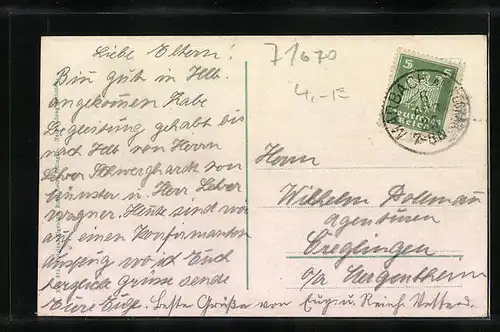 Liebe Eltern!
Bin gut in Hlb.
angekommen Habe
Begleitung gehabt bis
nach Hdt von Herrn
Lehrer von
Münster u. Herr Lehrer
Wagner. Heute sind wir
auf einen Konfirmanten
Ausflug wo ich Euch
herzliche Grüsse sende
Eure
Beste Grüße von Eug. u. Reich
71670
4,-E
5 5
Deutsches
Reich
Herrn
Wilhelm Dollman
Agenturen
Creglingen
o/a Mergentheim